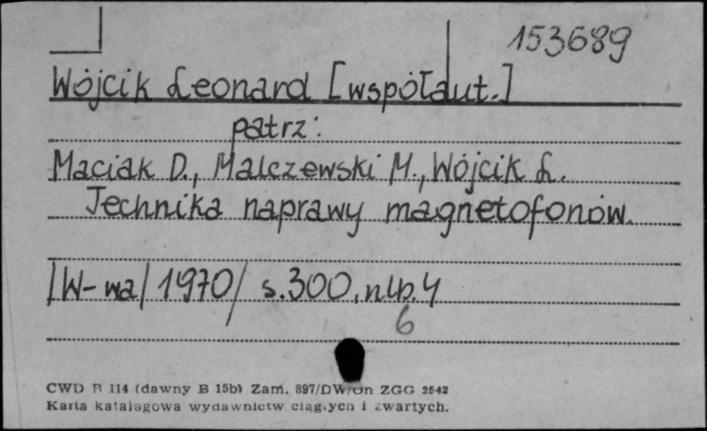 153689
Wójcik Leonard [współaut.]
patrz:
Maciak D., Malczewski M., Wójcik L.
Technika naprawy magnetofonów.
/W-wa/ 1970/ s.300, nlb.4
6
CWD B 114 (dawny B 15b) Zam. 897/DW/Un ZGG 2542
Karta katalogowa wydawnictw ciągłych i zwartych.